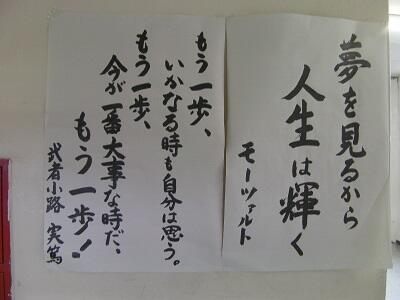 夢を見るから
人生は輝く
モーツァルト
もう一歩、
いかなる時も自分は思う。
もう一歩、
今が一番大事な時だ、
もう一歩！
武者小路 実篤